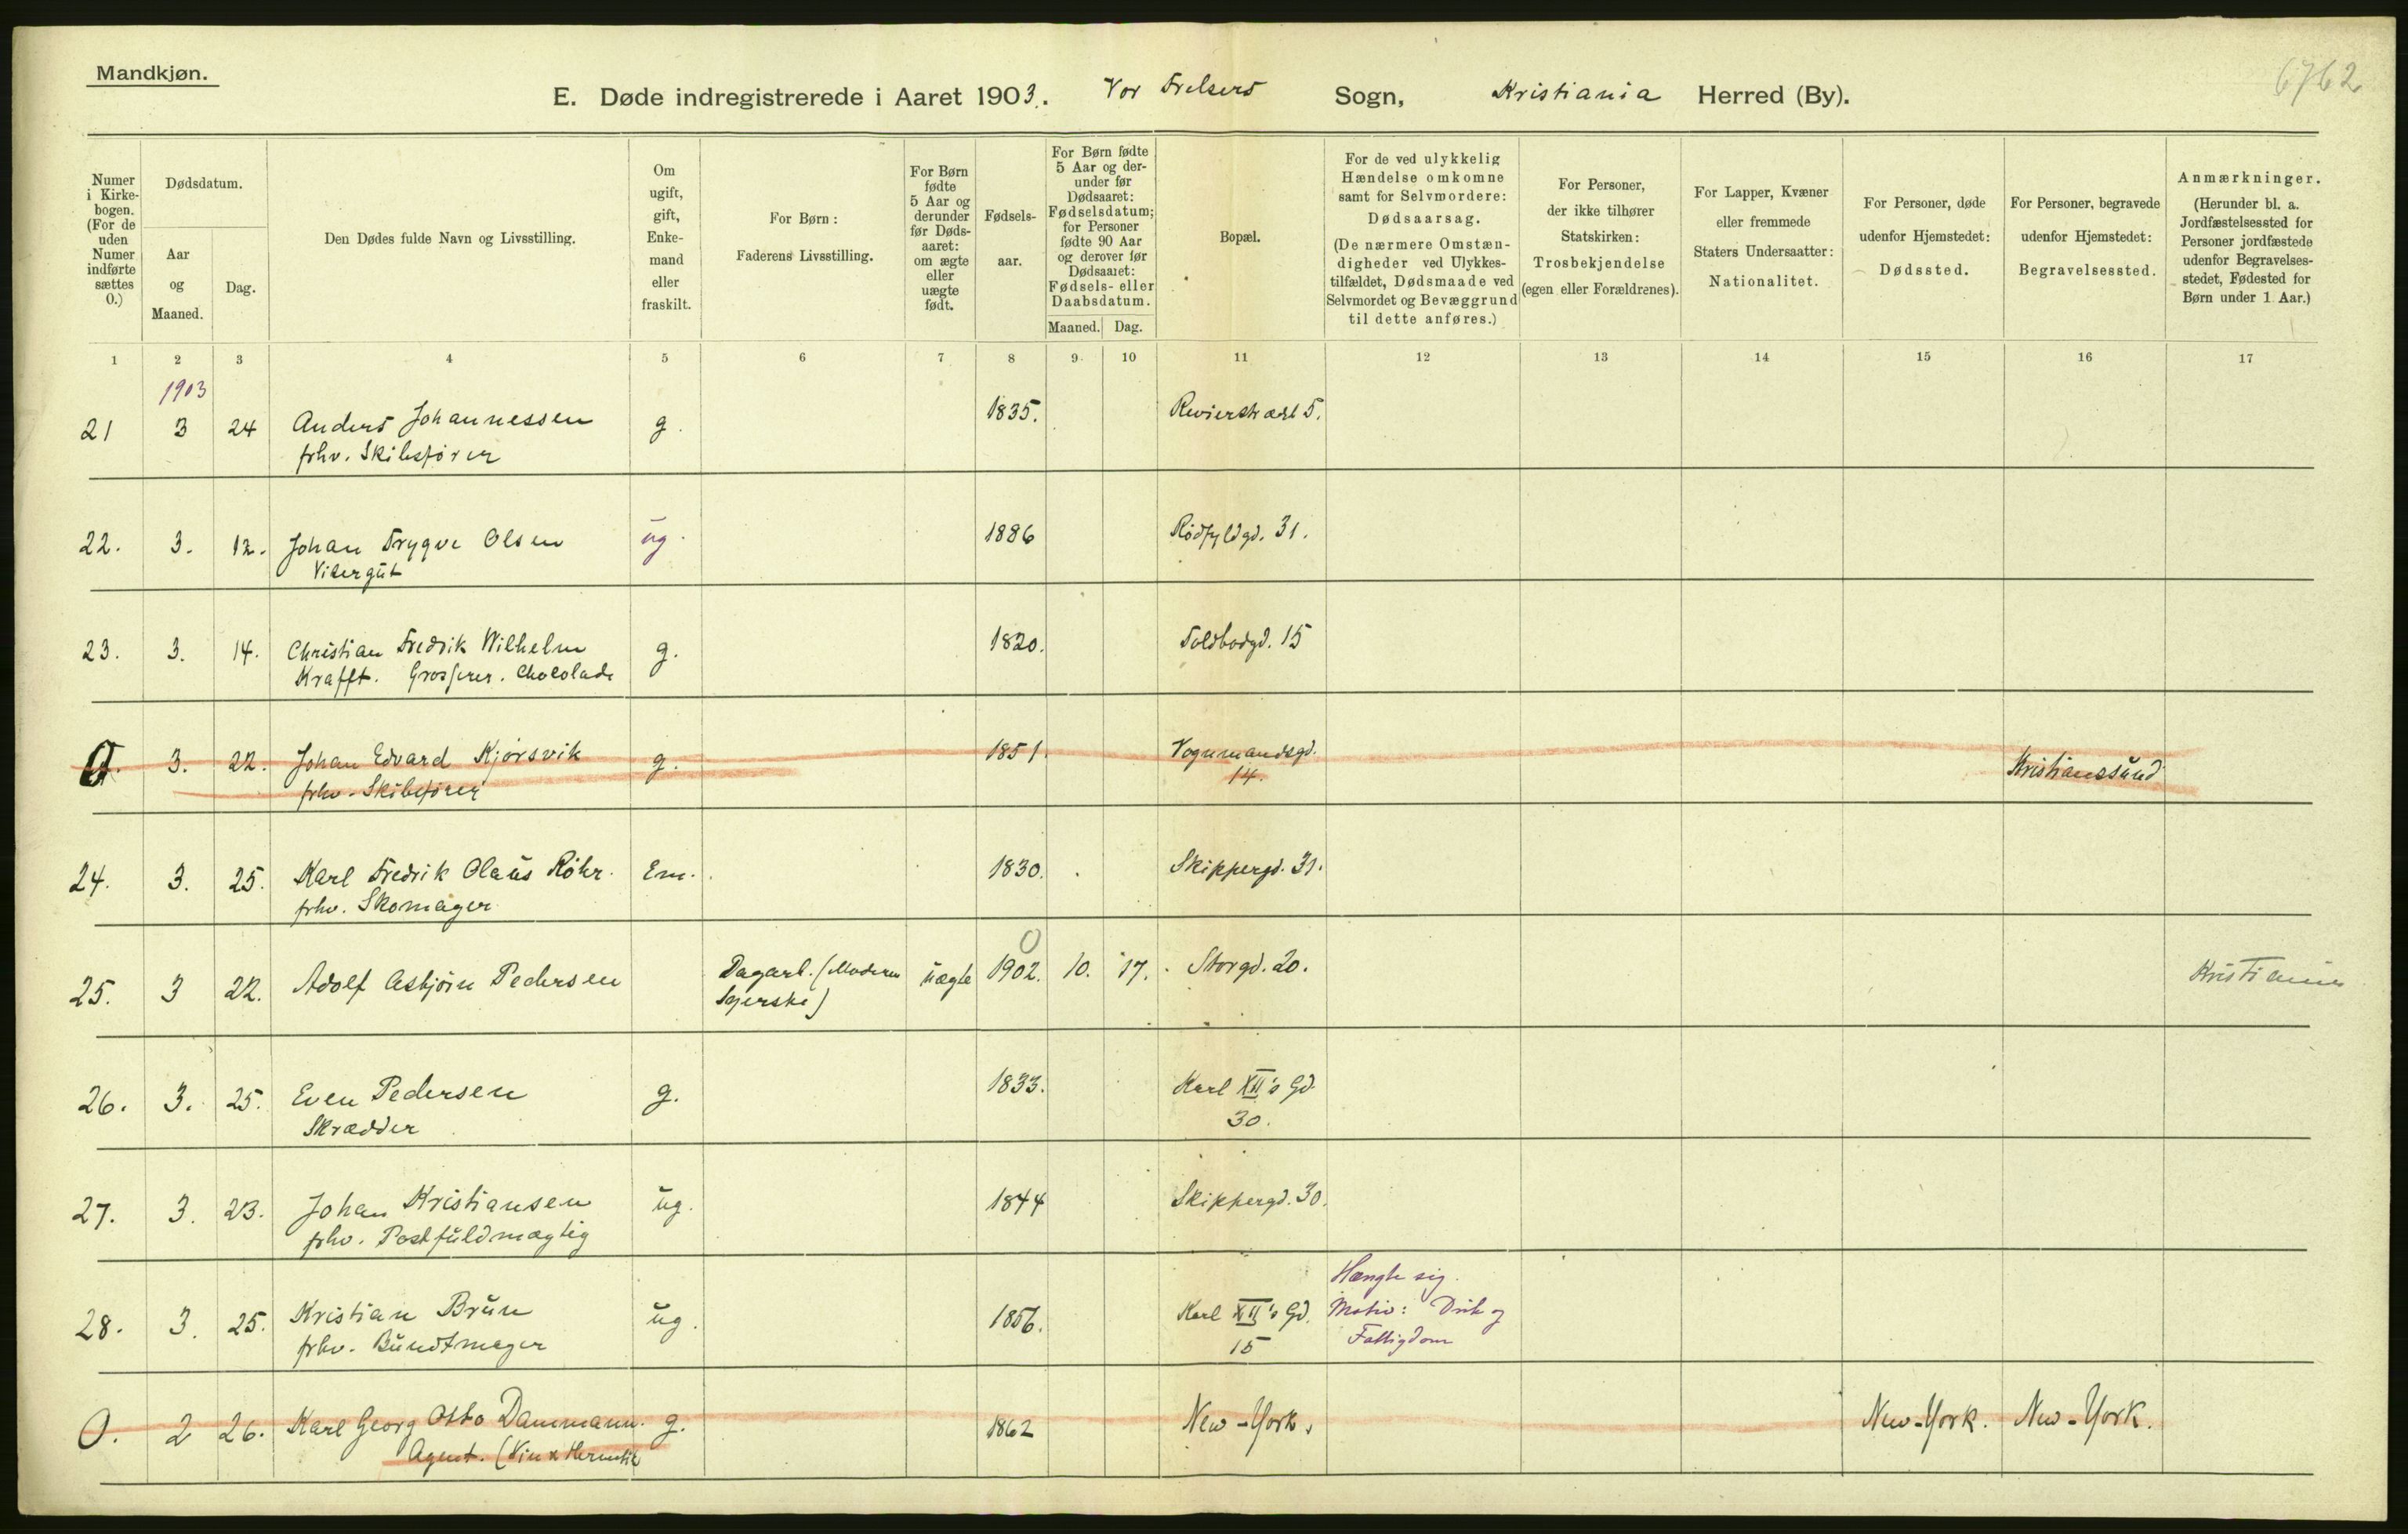 Mandkjøn.
E. Døde indregistrerede i Aaret 1903. Vor Frelsers Sogn, Kristiania Herred (By).
6762
Numer i Kirkebogen. (For de uden Numer indførte sættes 0.)
Dødsdatum.
Aar og Maaned.
Dag.
Den Dødes fulde Navn og Livsstilling.
Om ugift, gift, Enkemand eller fraskilt.
For Børn: Faderens Livsstilling.
For Børn fødte 5 Aar og derunder før Dødsaaret: om ægte eller uægte født.
Fødselsaar.
For Børn fødte 5 Aar og derunder før Dødsaaret: Fødselsdatum; for Personer fødte 90 Aar og derover før Dødsaaret: Fødsels- eller Daabsdatum.
Maaned. Dag.
Bopæl.
For de ved ulykkelig Hændelse omkomne samt for Selvmordere: Dødsaarsag. (De nærmere Omstændigheder ved Ulykkestilfældet, Dødsmaade ved Selvmordet og Bevæggrund til dette anføres.)
For Personer, der ikke tilhører Statskirken: Trosbekjendelse (egen eller Forældrenes).
For Lapper, Kvæner eller fremmede Staters Undersaatter: Nationalitet.
For Personer, døde udenfor Hjemstedet: Dødssted.
For Personer, begravede udenfor Hjemstedet: Begravelsessted.
Anmærkninger. (Herunder bl. a. Jordfæstelsessted for Personer jordfæstede udenfor Begravelsesstedet, Fødested for Børn under 1 Aar.)
1 2 3 4 5 6 7 8 9 10 11 12 13 14 15 16 17
1903
21 3 24 Anders Johannessen g. 1835. Revierstrædt 5.
frhv. Skibsfører
22. 3. 12. Johan Trygve Olsen ug. 1886 Rødfyldgd. 31.
Visergut
23. 3. 14. Christian Fredrik Wilhelm g. 1820. Toldbodgd. 15
Krafft. Grosserer. Chocolade
0. 3. 22. Johan Edvard Kjørsvik g. 1851. Vognmandsgd. Kristianssund
frhv. Skibsfører 14.
24. 3. 25. Karl Fredrik Olaus Röhr. Em. 1830. Skippergd. 31.
frhv. Skomager
0
25. 3 22. Adolf Asbjørn Pedersen Dagarb. (Moderen uægte 1902. 10. 17. Storgd. 20. Kristiania
Syerske)
26. 3. 25. Even Pedersen g. 1833. Karl XII's Gd.
Skrædder 30.
27. 3. 23. Johan Kristiansen ug. 1844 Skippergd. 30.
frhv. Postfuldmægtig
Hængte sig.
28. 3. 25. Kristian Brun ug. 1856. Karl XII's Gd. Motiv: Drik og
frhv. Bundtmager 15 Fattigdom
0. 2 26. Karl Georg Otto Dammann. g. 1862 New-York. New-York. New-York.
Agent. (Vin & Hermetik